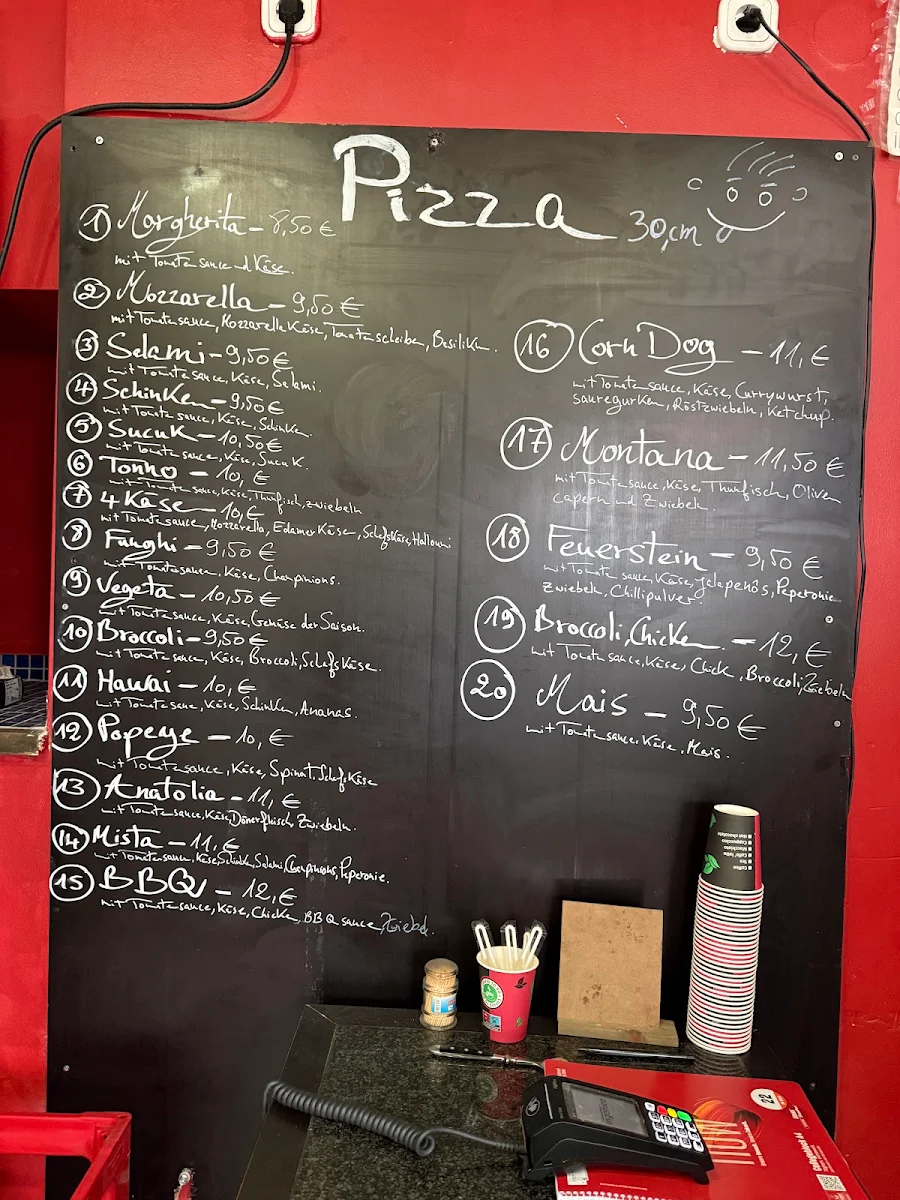 Pizza 30,cm
1 Margherita - 8,50 €
mit Tomatensauce und Käse.
2 Mozzarella - 9,50 €
mit Tomatensauce, Mozzarella Käse, Tomatenscheiben, Basilikum.
3 Salami - 9,50 €
mit Tomatensauce, Käse, Salami.
4 Schinken - 9,50 €
mit Tomatensauce, Käse, Schinken.
5 Sucuk - 10,50 €
mit Tomatensauce, Käse, Sucuk.
6 Tonno - 10, €
mit Tomatensauce, Käse, Thunfisch, zwiebeln
7 4 Käse - 10, €
mit Tomatensauce, Mozzarella, Edamer Käse, Schafskäse, Halloumi
8 Funghi - 9,50 €
mit Tomatensauce, Käse, Champinions.
9 Vegeta - 10,50 €
mit Tomatensauce, Käse, Gemüse der Saison.
10 Broccoli - 9,50 €
mit Tomatensauce, Käse, Broccoli, Schafskäse.
11 Hawai - 10, €
mit Tomatensauce, Käse, Schinken, Ananas.
12 Popeye - 10, €
mit Tomatensauce, Käse, Spinat, Schafskäse
13 Anatolia - 11, €
mit Tomatensauce, Käse, Dönerfleisch, Zwiebeln.
14 Mista - 11, €
mit Tomatensauce, Käse, Schinken, Salami, Champinions, Peperonie.
15 BBQ - 12, €
mit Tomatensauce, Käse, Chicken, BBQ sauce, Ziebel.
16 Corn Dog - 11, €
mit Tomatensauce, Käse, Currywurst,
sauregurken, Röstzwiebeln, Ketchup.
17 Montana - 11,50 €
mit Tomatensauce, Käse, Thunfisch, Oliven
capern und Zwiebeln.
18 Feuerstein - 9,50 €
mit Tomatensauce, Käse, Jalapenós, Peperonie
Zwiebeln, Chillipulver.
19 Broccoli, Chicken - 12, €
mit Tomatensauce, Käse, Chick, Broccoli, Ziebeln
20 Mais - 9,50 €
mit Tomatensauce, Käse, Mais.
Coffee
Tea
Caffè latte
Macchiato
Cappuccino
Hot chocolate
22